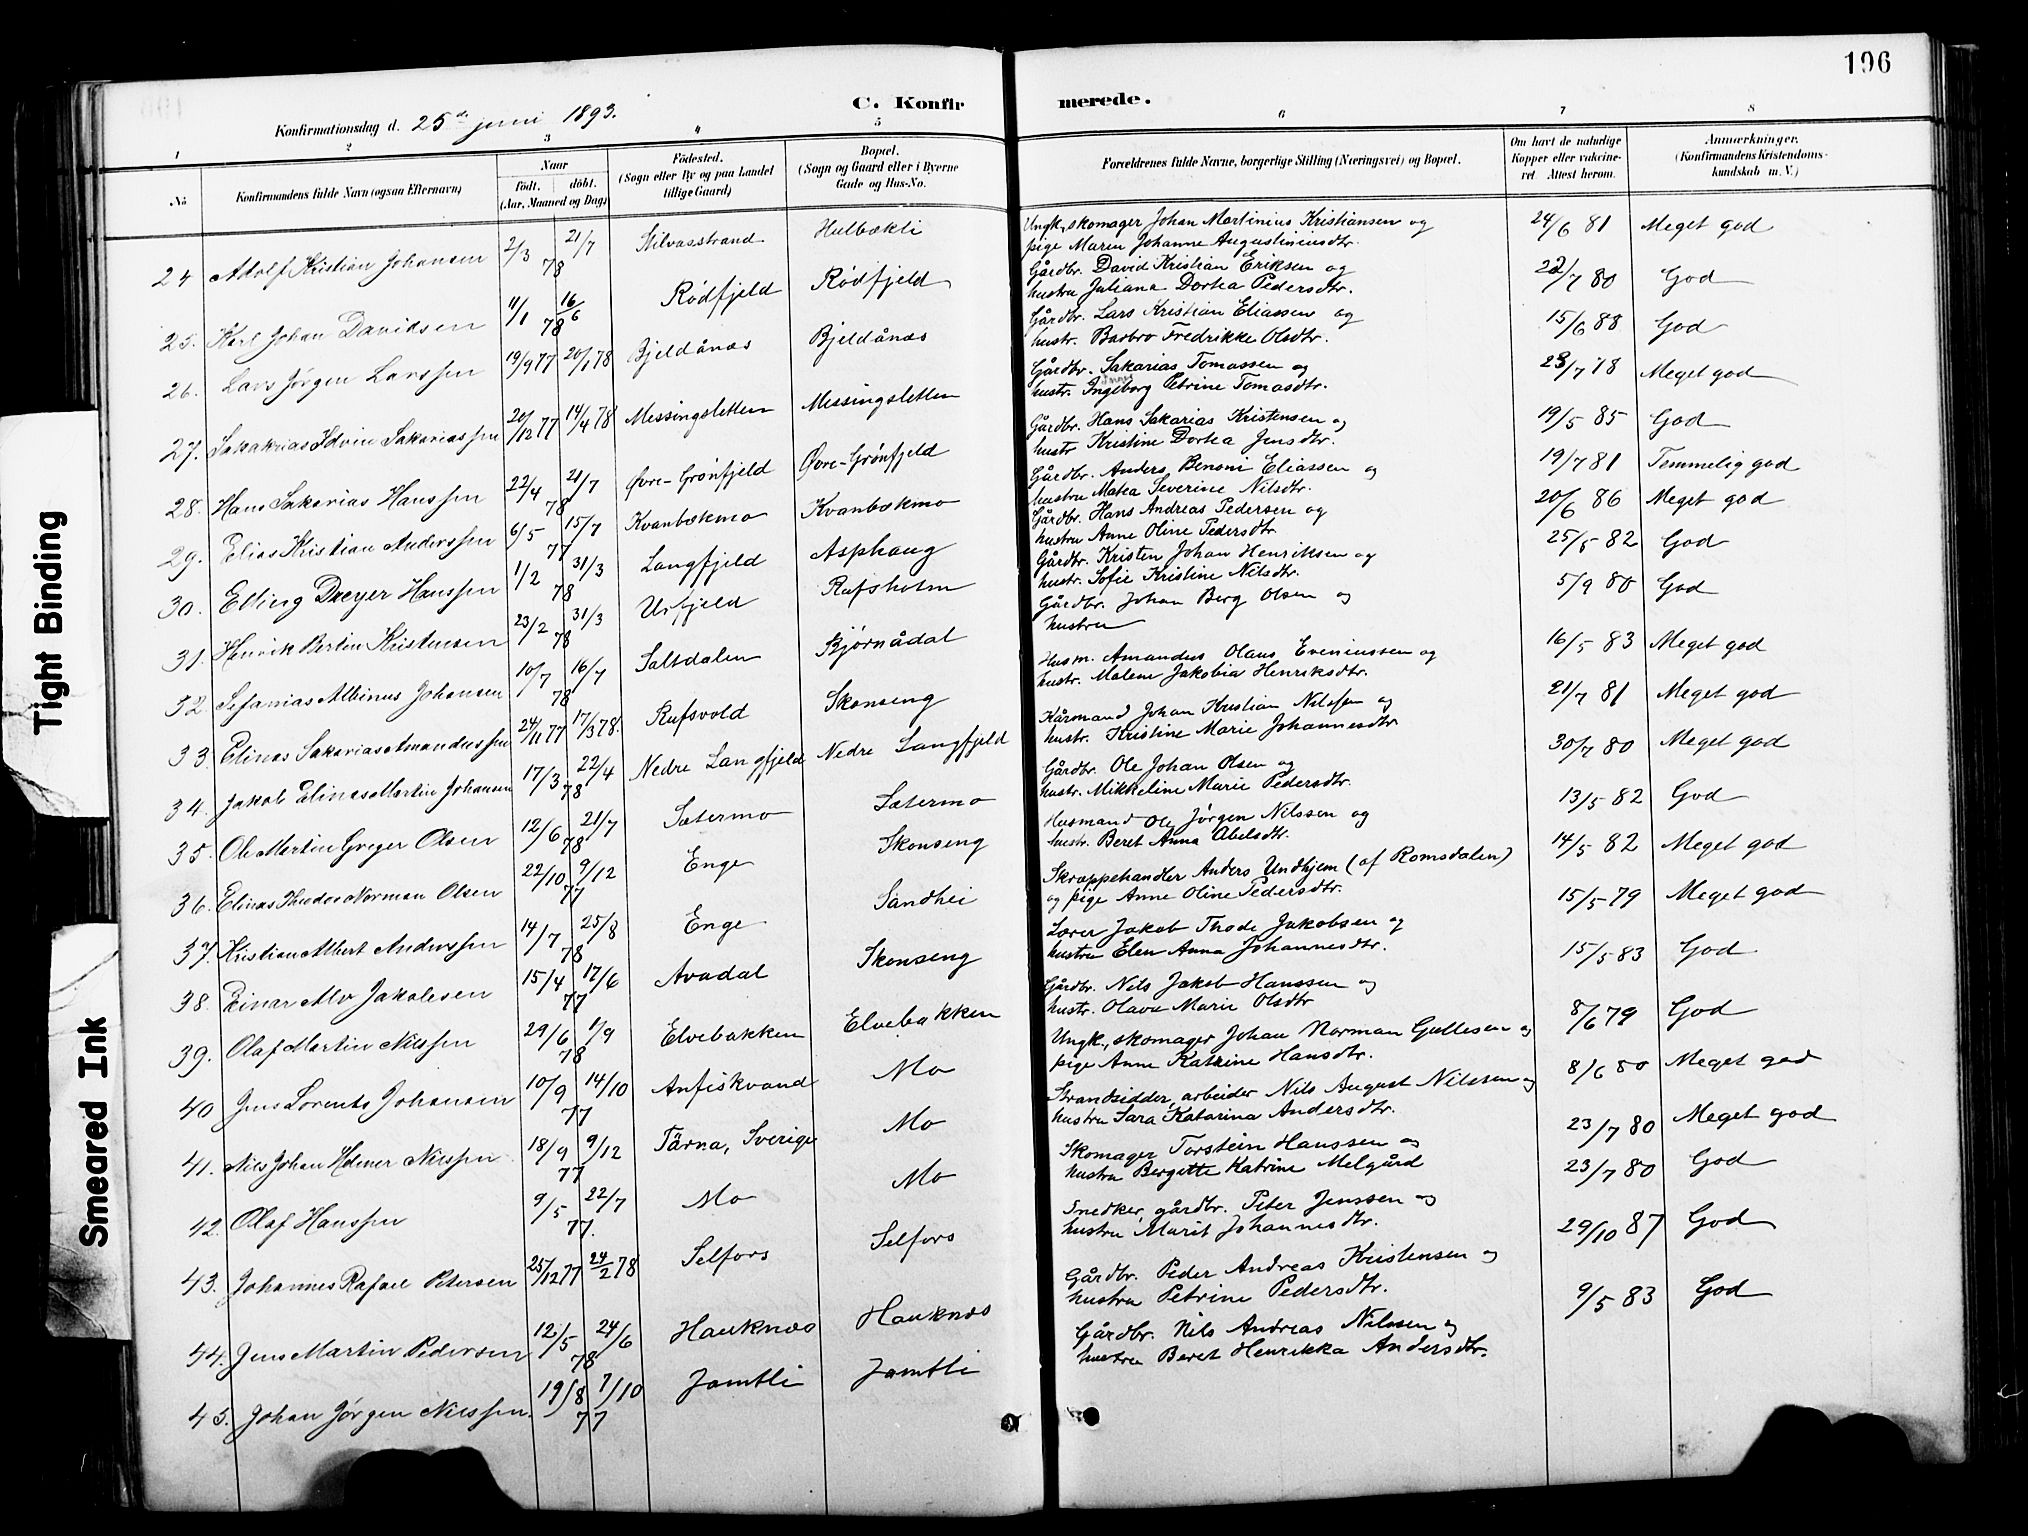 196
C. Konfirmerede.
Konfirmationsdag d. 25de juni 1893.
1 2 3 4 5 6 7 8
No
Konfirmandens fulde Navn (ogsaa Efternavn)
Naar født. døbt. (Aar, Maaned og Dag)
Fødested. (Sogn eller By og paa Landet tillige Gaard)
Bopæl. (Sogn og Gaard eller i Byerne Gade og Hus-No.
Forældrenes fulde Navne, borgerlige Stilling (Næringsvei) og Bopæl.
Om havt de naturlige Kopper eller vakcineret. Attest herom.
Anmærkninger. (Konfirmandens Kristendomskundskab m. V.)
24 Adolf Kristian Johansen 2/3 21/7 78 Stilvasstrand Hulbækli Ungk., skomager Johan Martinius Kristiansen og pige Maren Johanne Augustiniusdtr. 24/6 81 Meget god
25. Karl Johan Davidsen 4/1 16/6 78 Rødfjeld Rødfjeld Gårdbr. David Kristian Eriksen og hustru Juliana Dortea Pedersdtr. 22/7 80 God
26. Lars Jørgen Larssen 19/9 77 20/1 78 Bjeldånæs Bjeldånæs Gårdbr. Lars Kristian Eliassen og hustr. Barbro Fredrikke Olsdtr. 15/6 88 God
27. Sakakrias Edvin Sakariassen 20/12 77 14/4 78 Messingsletten Messingsletten Gårdbr. Sakarias Tomassen og hustr. Ingeborg Petrine Tomasdtr. 23/7 78 Meget god
28. Hans Sakarias Hanssen 22/4 21/7 78 Øvre-Grønfjeld Øvre-Grønfjeld Gårdbr. Hans Sakarias Kristensen og hustr Kristine Dortea Jensdtr. 19/5 85 God
29. Elias Kristian Anderssen 6/5 15/7 77 Kvanbækmo Kvanbækmo Gårdbr. Anders Benoni Eliassen og hustru Matea Severine Nilsdtr. 19/7 81 Temmelig god
30. Elling Dreyer Hanssen 1/2 31/3 78 Langfjeld Asphaug Gårdbr. Hans Andreas Pedersen og hustru Anne Oline Pedersdtr 20/6 86 Meget god
31. Henrik Bertin Kristensen 23/2 31/3 78 Urfjeld Rufsholm Gårdbr. Kristen Johan Henriksen og hustr. Sofie Kristine Nilsdtr. 25/5 82 God
32. Sefanias Albinus Johansen 10/7 16/7 78 Saltdalen Bjørnådal Gårdbr. Johan Berg Olsen og hustru 5/9 80 God
33. Elinas Sakarias Amandussen 24/11 77 17/3 78. Rufsvold Skonseng Husm. Amandus Olaus Eveniussen og hustr. Malene Jakobia Henriksdtr. 16/5 83 Meget god
34. Jakob Elinas Martin Johansen 17/3 22/4 78 Nedre Langfjeld Nedre Langfjeld Kårmand Johan Kristian Nilssen og hustr. Kristine Marie Johannesdtr 21/7 81 Meget god
35. Ole Martin Greger Olsen 12/6 21/7 78 Sætermo Sætermo Gårdbr. Ole Johan Olsen og hustr. Mikkeline Marie Pedersdtr. 30/7 80 Meget god
36. Elinas Theodor Norman Olsen 22/10 9/12 77 Enge Skonseng Husmand Ole Jørgen Nilssen og hustr. Beret Anna Abelsdtr. 13/5 82 God
37. Kristian Albert Anderssen 14/7 25/8 78 Enge Sandhei Skræppehandler Anders Undhjem (af Romsdalen) og pige Anne Oline Pedersdtr. 14/5 82 Meget god
38. Einar Alv Jakobsen 15/4 17/6 77 Avadal Skonseng Lærer Jakob Thode Jakobsen og hustru Elen Anna Johannesdtr. 15/5 79 Meget god
39. Olaf Martin Nilssen 29/6 1/9 78 Elvebakken Elvebakken Gårdbr. Nils Jakob Hanssen og hustr. Olava Marie Olsdtr 15/5 83 God
40 Jens Lorents Johansen 10/9 14/10 77 Anfiskvand Mo Ungk., skomager Johan Norman Gullesen og pige Anne Katrine Hansdtr. 8/6 79 God
41. Nils Johan Helmer Nilssen. 18/9 9/12 77 Tärna, Sverige Mo Strandsidder, arbeider Nils August Nilssen og hustru Sara Katarina Andersdtr. 8/6 80 Meget god
42. Olaf Hanssen 9/5 22/7 77. Mo Mo Skomager Torstein Hanssen og hustru Bergitte Katrine Melgård 23/7 80 Meget god
43. Johannes Rafael Petersen 25/12 77 24/2 78 Selfors Selfors Snedker, gårdbr. Peter Jenssen og hustru Marit Johannesdtr. 23/7 80 God
44. Jens Martin Pedersen 12/5 24/6 78 Hauknæs Hauknæs Gårdbr. Peder Andreas Kristensen og hustru Petrine Pedersdtr. 29/10 87 God
45. Johan Jørgen Nilssen. 19/8 7/10 77 Jamtli Jamtli Gårdbr. Nils Andreas Nilssen og hustru Beret Henrikka Andersdtr. 9/5 83 God
Tight Binding
Smeared Ink